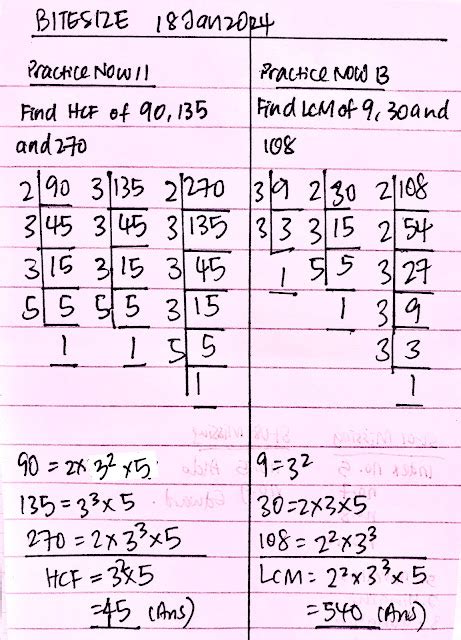 BITESIZE 18 Jan 2024
Practice Now 11
Find HCF of 90, 135
and 270
2 90 3 135 2 270
3 45 3 45 3 135
3 15 3 15 3 45
5 5 5 5 3 15
1 1 5 5
1
90 = 2 × 3² × 5
135 = 3³ × 5
270 = 2 × 3³ × 5
HCF = 3² × 5
= 45 (Ans)
Practice Now 13
Find LCM of 9, 30 and
108
3 9 2 30 2 108
3 3 3 15 2 54
1 5 5 3 27
1 3 9
3 3
1
9 = 3²
30 = 2 × 3 × 5
108 = 2² × 3³
LCM = 2² × 3³ × 5
= 540 (Ans)